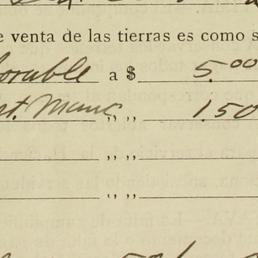 e venta de las tierras es como s
orable a $ 5.00
st. Manc " " 1.50
" "
" "